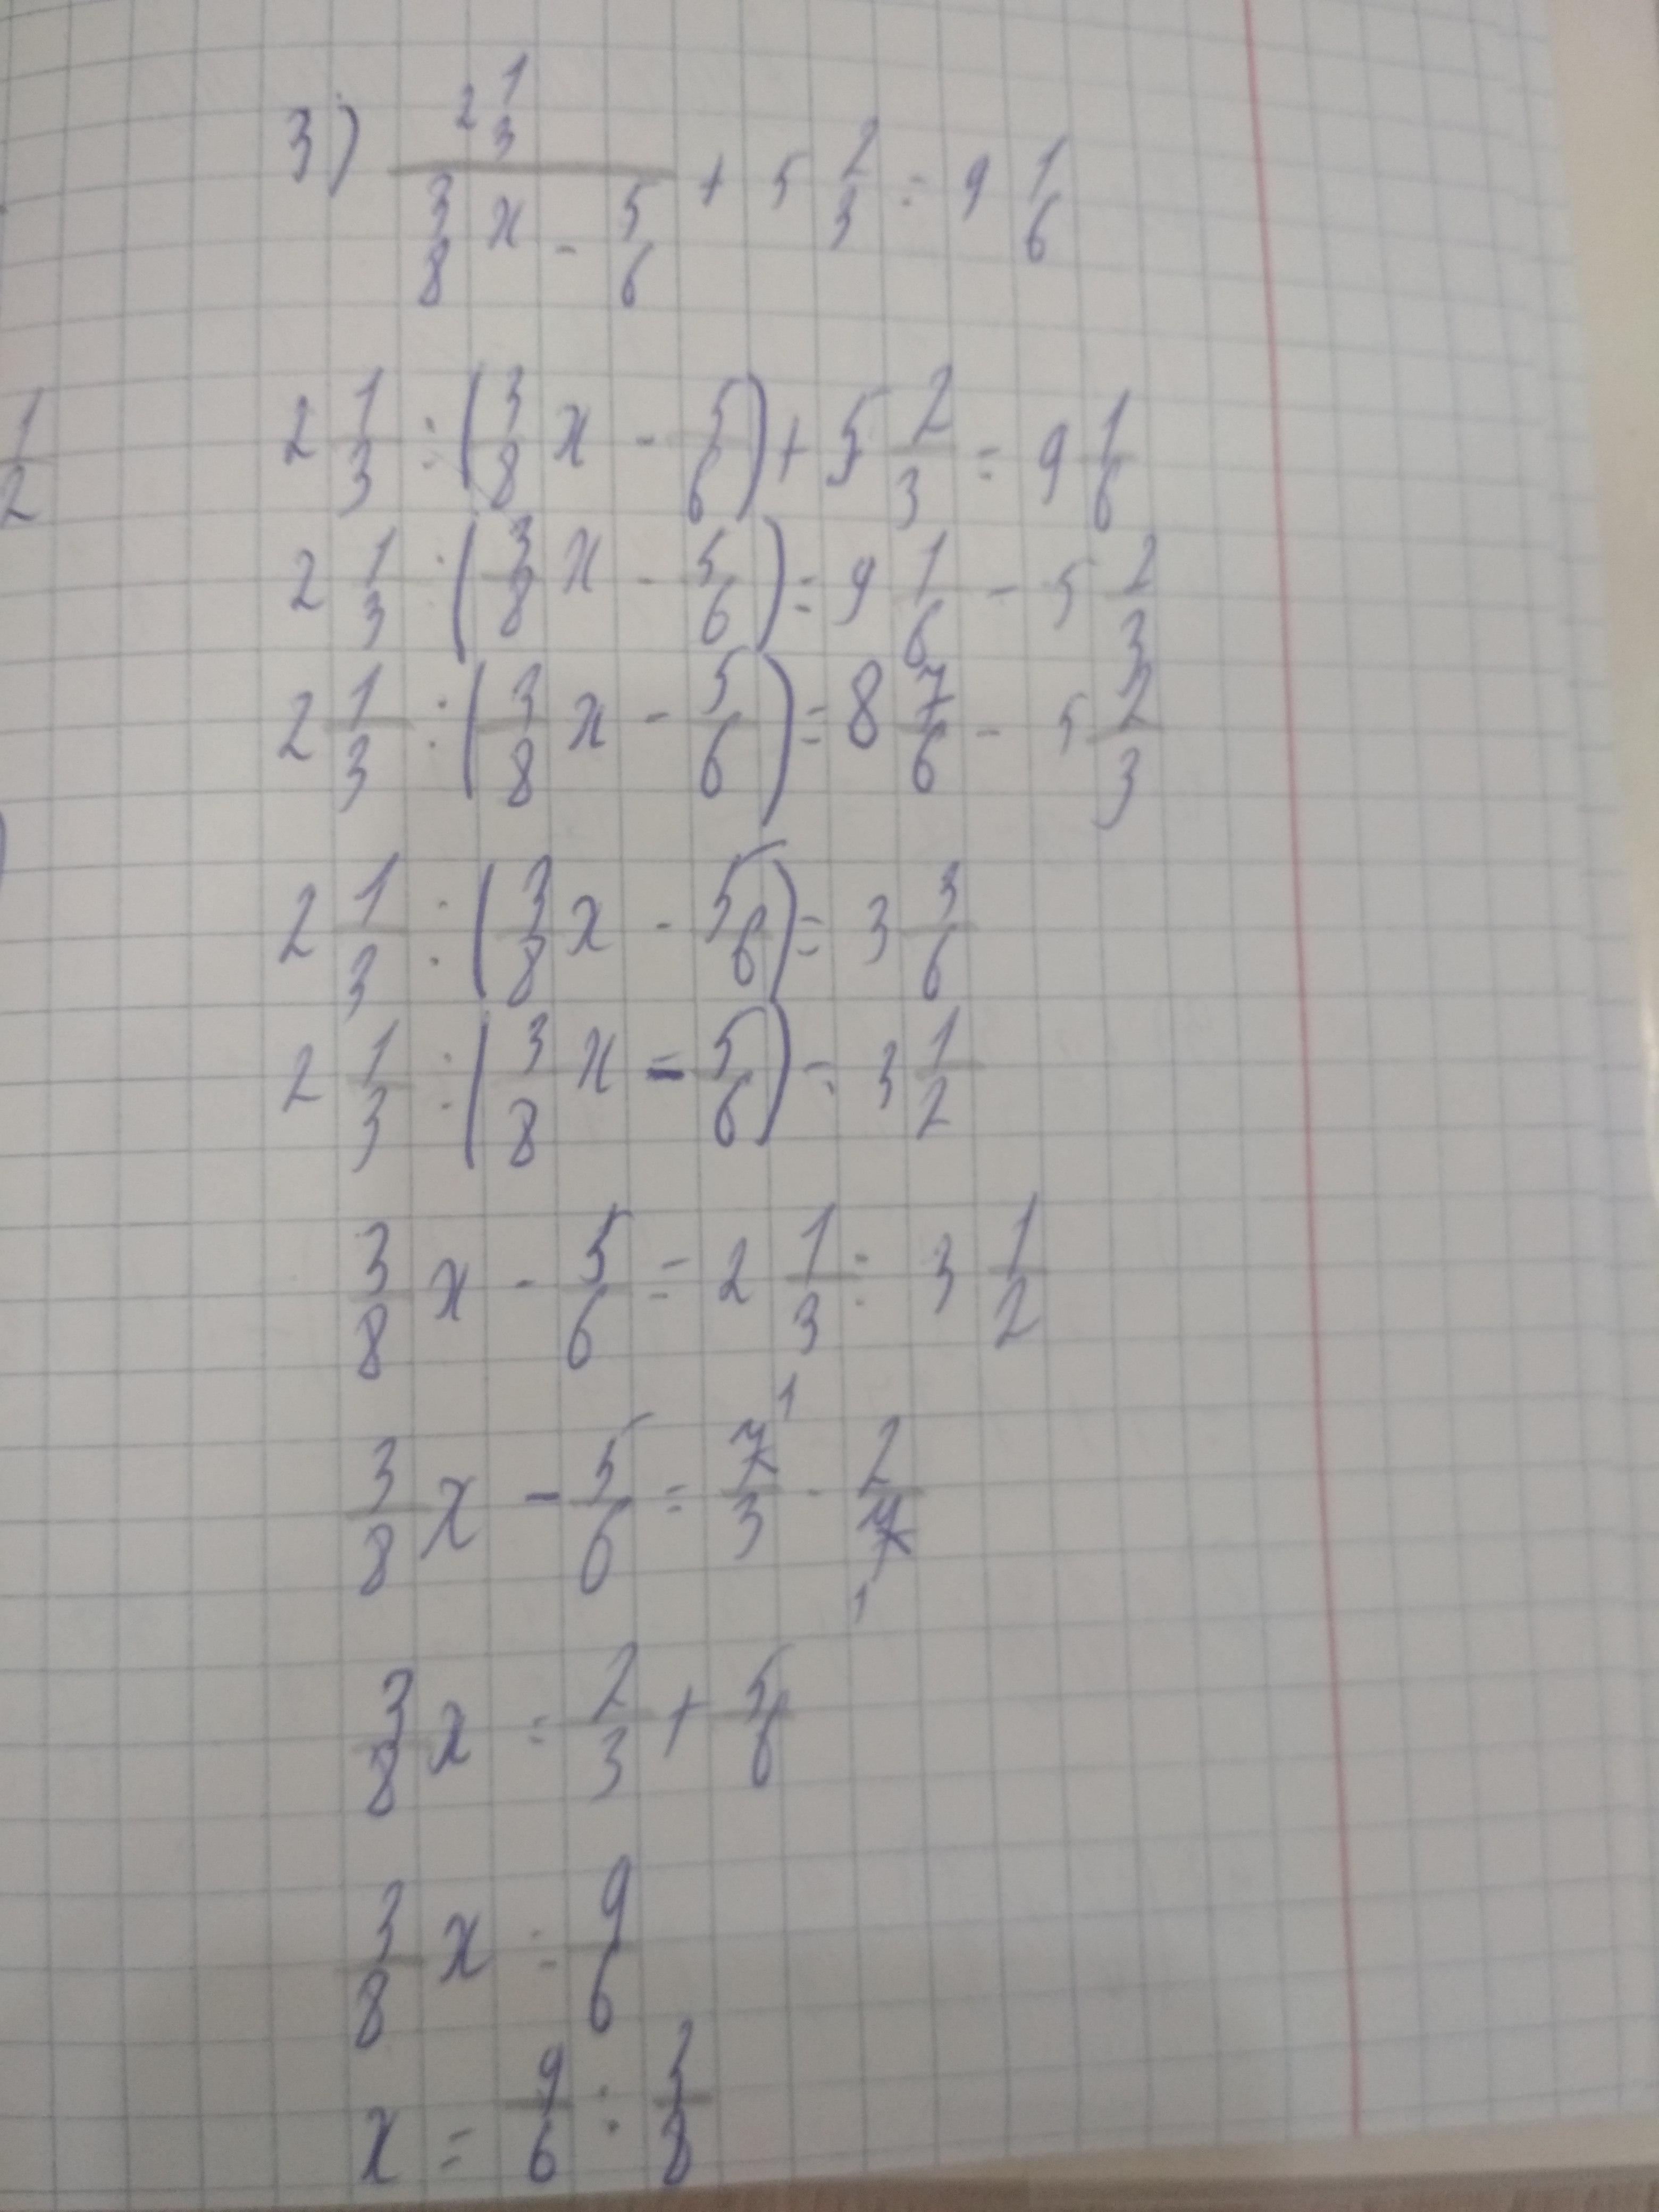 3) (2 1/3)/(3/8 x - 5/6) + 5 2/3 = 9 1/6
1/2
2 1/3 : (3/8 x - 5/6) + 5 2/3 = 9 1/6
2 1/3 : (3/8 x - 5/6) = 9 1/6 - 5 2/3
2 1/3 : (3/8 x - 5/6) = 8 7/6 - 5 2/3
2 1/3 : (3/8 x - 5/6) = 3 3/6
2 1/3 : (3/8 x - 5/6) = 3 1/2
3/8 x - 5/6 = 2 1/3 : 3 1/2
3/8 x - 5/6 = 7¹/3 · 2/7₁
3/8 x = 2/3 + 5/6
3/8 x = 9/6
x = 9/6 : 3/8